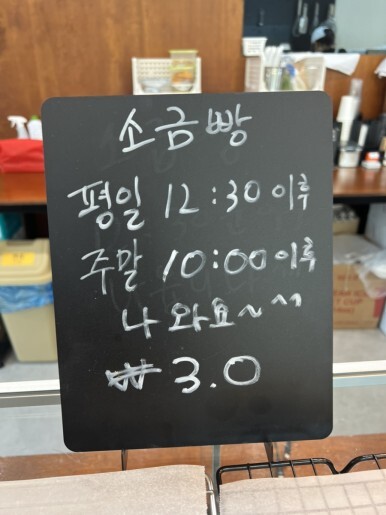 소금빵
평일 12:30 이후
주말 10:00 이후
나와요~^^
₩3.0